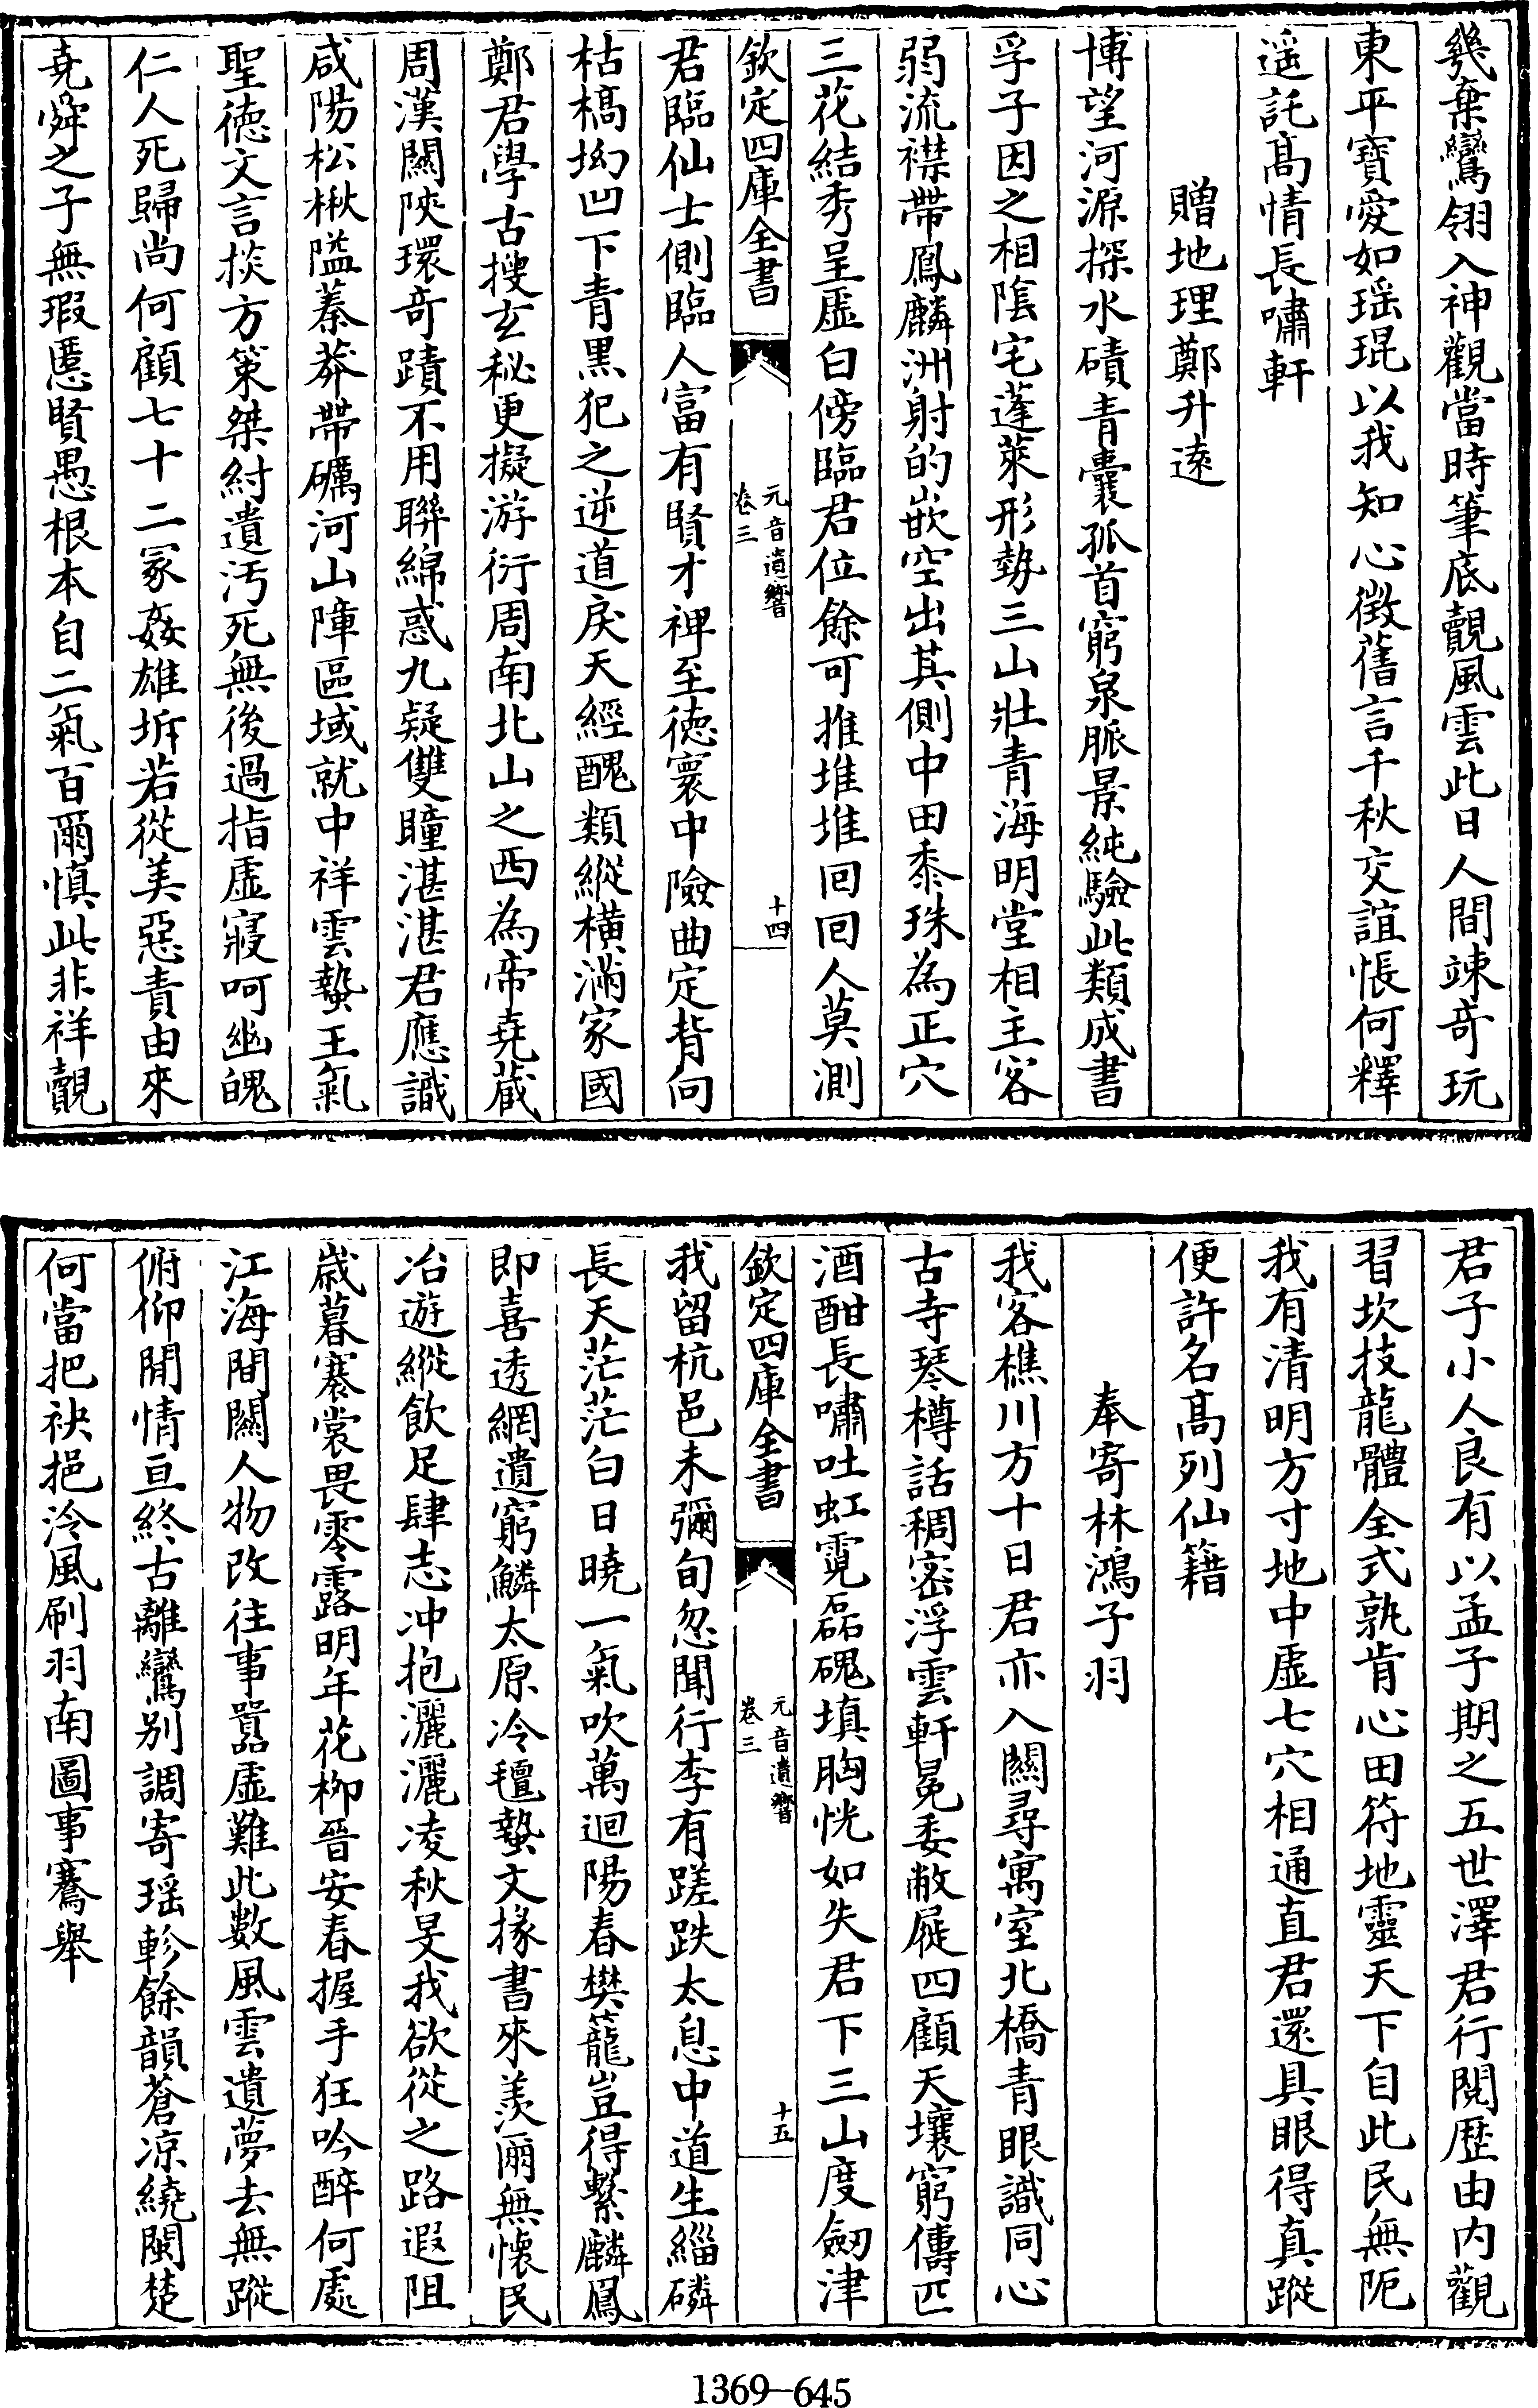 幾棄鸞翎入神觀當時筆底覿風雲此日人間竦奇玩
東平寶愛如瑶琨以我知心徴舊言千秋交誼悵何釋
遥託髙情長嘯軒
贈地理鄭升遠
博望河源探水磧青囊孤首窮泉脈景純驗此類成書
孚子因之相隂宅蓬萊形勢三山壯青海明堂相主客
弱流襟帶鳳麟洲射的嵌空出其側中田黍珠為正穴
三花結秀呈虚白傍臨君位餘可推堆堆回回人莫測
欽定四庫全書
元音遺響
卷三
十四
君臨仙士側臨人富有賢才裨至徳寰中險曲定背向
枯槁坳凹下青黒犯之逆道戾天經醜類縱横滿家國
鄭君學古搜玄秘更擬游衍周南北山之西為帝堯蔵
周漢闗陜環竒蹟不用聨綿惑九疑雙瞳湛湛君應識
咸陽松楸隘蓁莽帶礪河山障區域就中祥雲蟄王氣
聖徳文言掞方策桀紂遺汚死無後過指虚寢呵幽魄
仁人死歸尚何顧七十二冡姦雄坼若從美惡責由來
堯舜之子無瑕慝賢愚根本自二氣百爾慎此非祥覿
君子小人良有以孟子期之五世澤君行閲歴由内觀
習坎技龍體全式孰肯心田符地靈天下自此民無阨
我有清明方寸地中虚七穴相通直君還具眼得真蹤
便許名髙列仙籍
奉寄林鴻子羽
我客樵川方十日君亦入闗尋寓室北橋青眼識同心
古寺琴樽話稠密浮雲軒冕委敝屣四顧天壤窮儔匹
酒酣長嘯吐虹霓磊磈填胸恍如失君下三山度劒津
欽定四庫全書
元音遺響
卷三
十五
我留杭邑未彌旬忽聞行李有蹉跌太息中道生緇磷
長天茫茫白日曉一氣吹萬迴陽春樊籠豈得繫麟鳳
即喜透網遺窮鱗太原冷氊蟄文掾書來羨爾無懷民
冶遊縱飲足肆志冲抱灑灑凌秋旻我欲從之路遐阻
嵗暮褰裳畏零露明年花柳晉安春握手狂吟醉何處
江海間闗人物改往事囂虚難此數風雲遺夢去無蹤
俯仰閒情亘終古離鸞别調寄瑶軫餘韻蒼凉繞閩楚
何當把袂挹泠風刷羽南圖事騫舉
1369—645